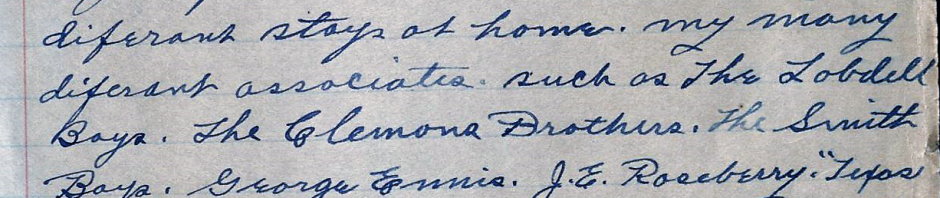 diferant stays at home. my many
diferant associates. such as The Lobdell
Boys. The Clemona Brothers. The Smith
Boys. George Ennis. J.E. Roseberry. "Texas